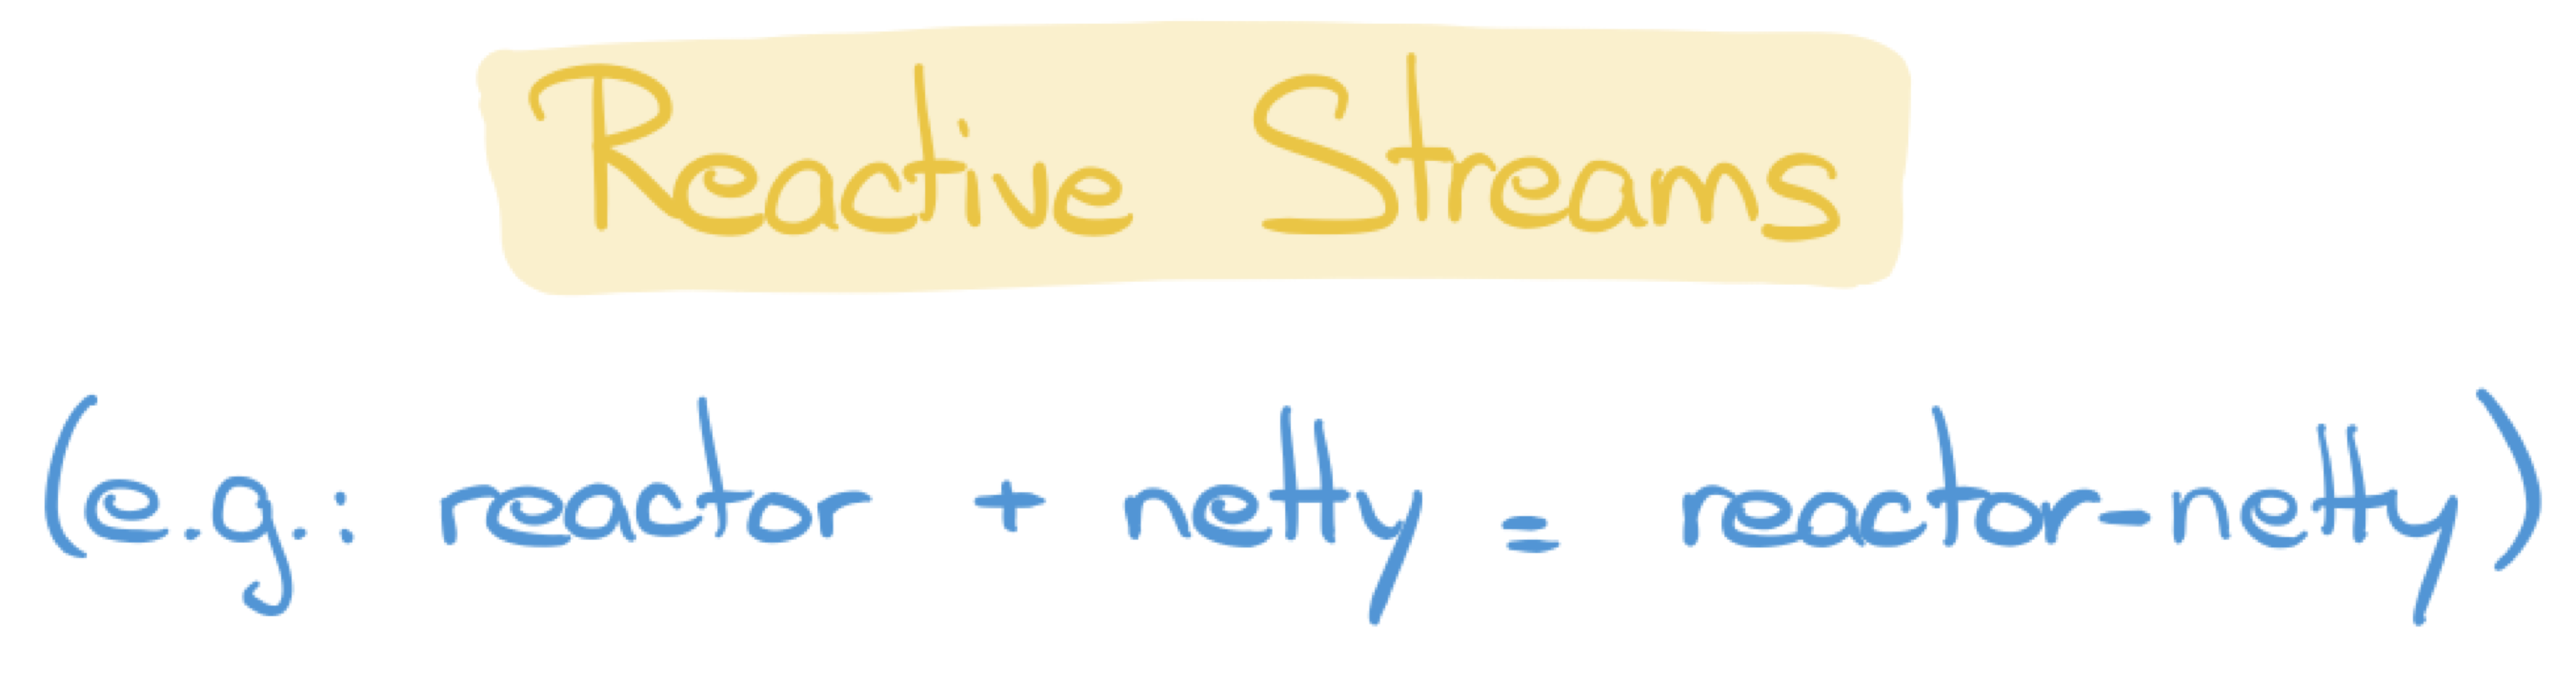 Reactive Streams
(e.g.: reactor + netty = reactor-netty)